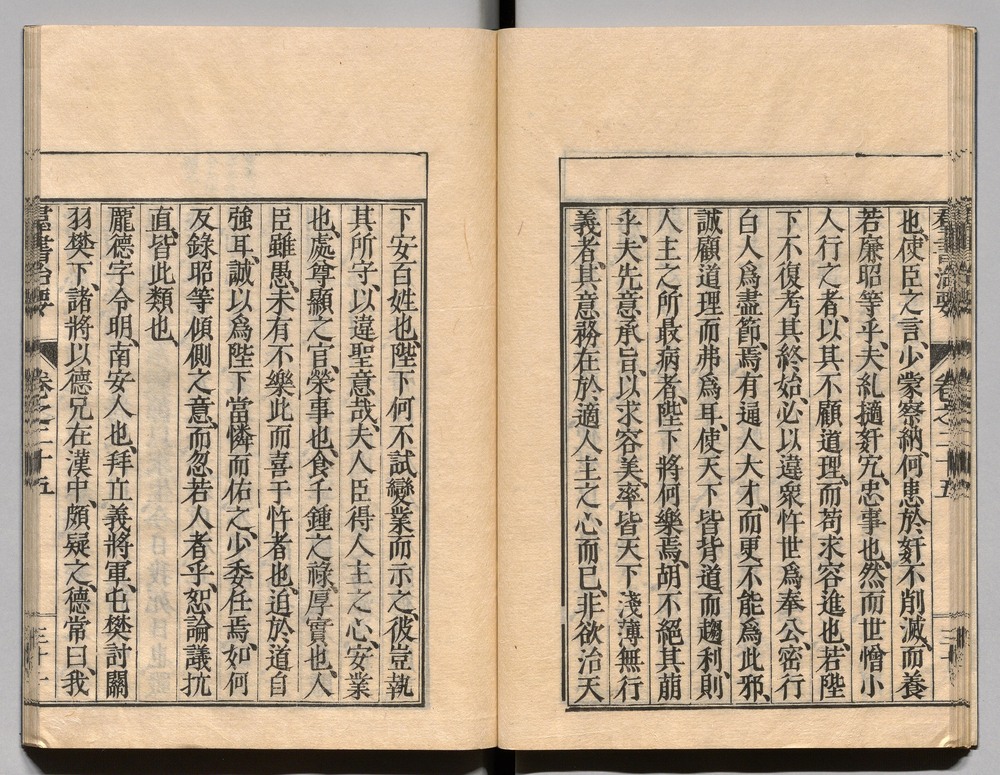 羣書治要 卷之二十五
也、使臣之言、少蒙察納、何患於奸不削滅、而養
若廉昭等乎、夫糺擿奸宄、忠事也、然而世憎小
人行之者、以其不顧道理、而苟求容進也、若陛
下不復考其終始、必以違衆忤世爲奉公、密行
白人爲盡節、焉有通人大才、而更不能爲此邪、
誠顧道理而弗爲耳、使天下皆背道而趨利、則
人主之所最病者、陛下將何樂焉、胡不絕其萠
乎、夫先意承旨、以求容美、率皆天下淺薄無行
義者、其意務在於適人主之心而已、非欲治天
下安百姓也、陛下何不試變業而示之、彼豈執
其所守、以違聖意哉、夫人臣得人主之心、安業
也、處尊顯之官、榮事也、食千鍾之祿、厚實也、人
臣雖愚、未有不樂此而喜于忤者也、迫於道自
強耳、誠以爲陛下當憐而佑之、少委任焉、如何
反錄昭等傾側之意、而忽若人者乎、恕論議抗
直、皆此類也、
龐德字令明、南安人也、拜立義將軍、屯樊討關
羽、樊下諸將以德兄在漢中、頗疑之、德常曰、我
羣書治要 卷之二十五